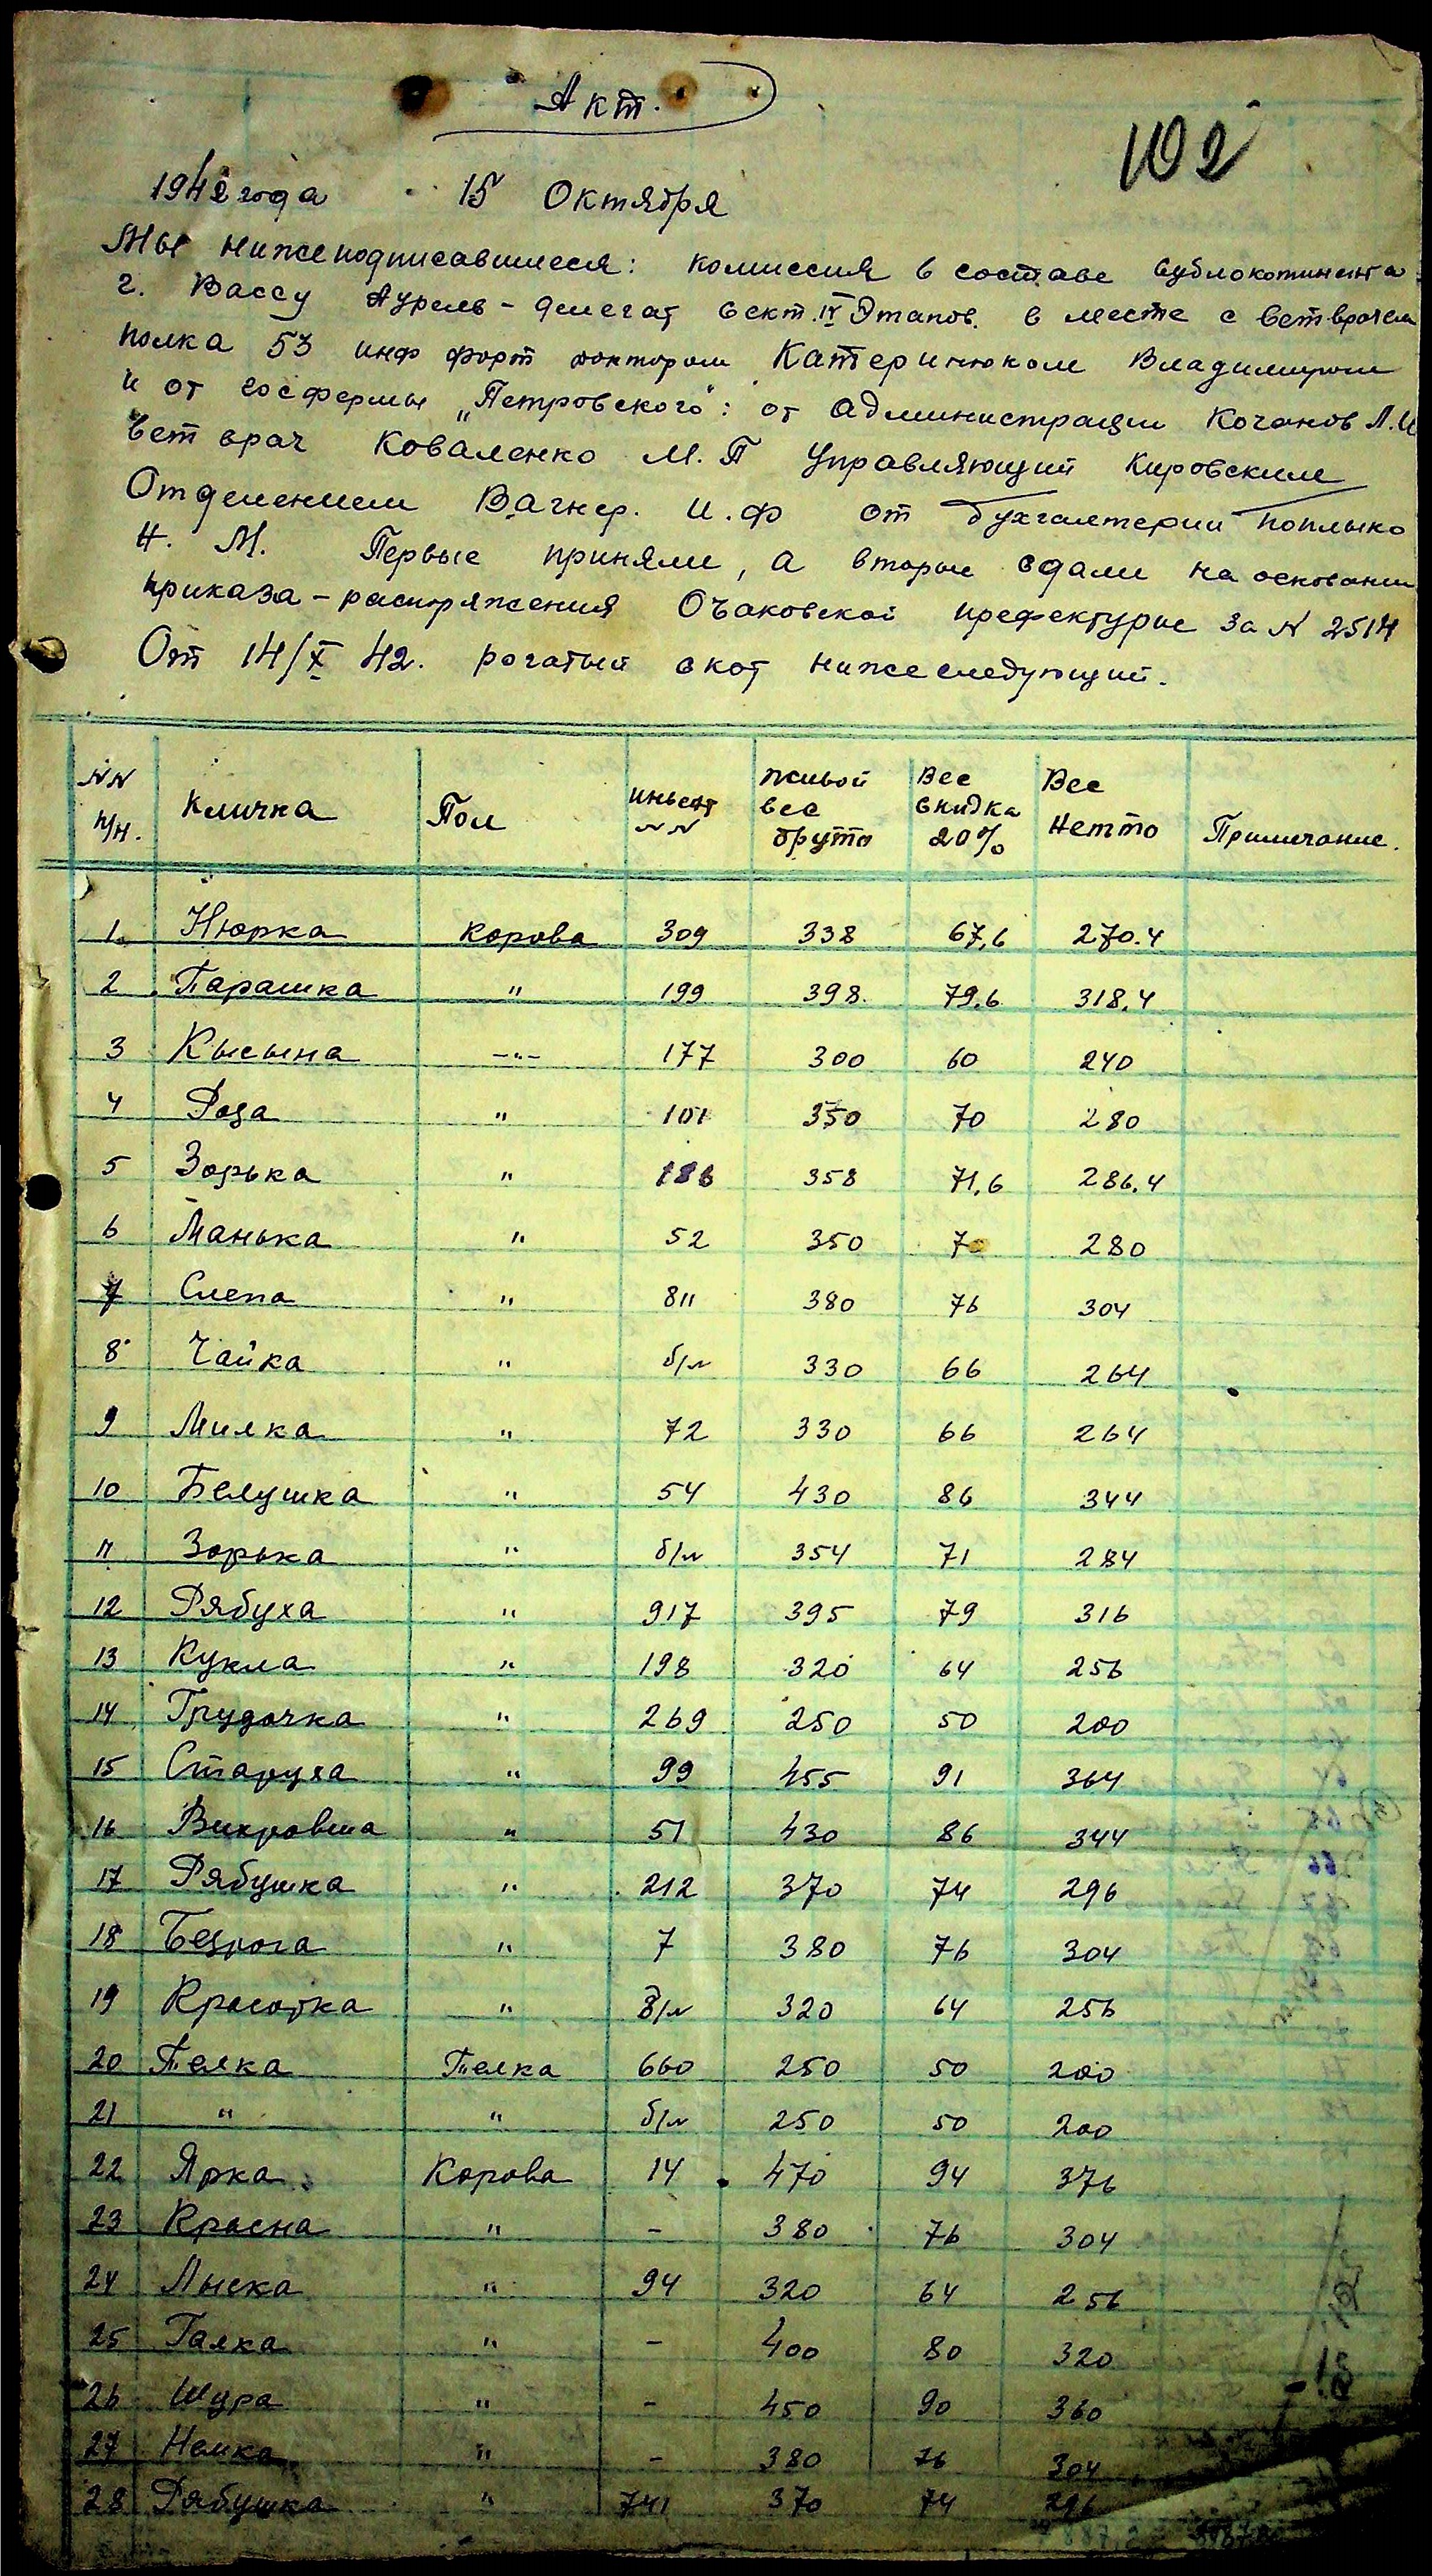 Акт.
102
1942 года 15 Октября
Мы нижеподписавшиеся: комиссия в составе сублокотинента
г. Вассу Аурель - делегат сект. IV Этапов. в месте с ветврачем
полка 53 инф форт доктором Катеринюком Владимиром
и от госфермы „Петровского": от администрации Кочанов Л.И
вет врач Коваленко М.П Управляющий Кировским
Отделением Вагнер. И.Ф от бухгалтерии Поплыко
Н. М. Первые приняли, а вторые сдали на основании
приказа - распоряжения Очаковской префектуры за N 2514
От 14/X 42. рогатый скот нижеследующий.
NN п/н. Кличка Пол инвент NN Живой вес брутто Вес скидка 20% Вес нетто Примечание.
1. Нюрка Корова 309 338 67,6 270.4
2 Парашка " 199 398. 79.6 318.4
3 Кысына -"- 177 300 60 240
4 Роза " 101 350 70 280
5 Зорька " 186 358 71,6 286.4
6 Манька " 52 350 70 280
7 Слепа " 811 380 76 304
8 Чайка " б/N 330 66 264
9 Милка " 72 330 66 264
10 Белушка " 54 430 86 344
11 Зорька " б/N 354 71 284
12 Рябуха " 917 395 79 316
13 Кукла " 198 320 64 256
14 Грудочка " 269 250 50 200
15 Старуха " 99 455 91 364
16 Вихровша " 51 430 86 344
17 Рябушка " 212 370 74 296
18 Безрога " 7 380 76 304
19 Красотка " Б/N 320 64 256
20 Телка Телка 660 250 50 200
21 " " б/N 250 50 200
22 Ярка Корова 14 470 94 376
23 Красна " - 380 76 304
24 Лыска " 94 320 64 256
25 Галка " - 400 80 320
26 Шура " - 450 90 360
27 Немка " - 380 76 304
28 Рябушка " 741 370 74 296